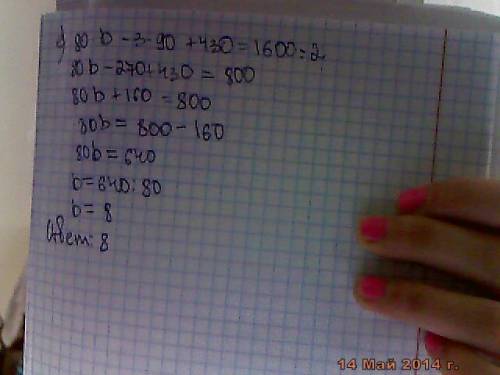 г) 80·b - 3·90 + 430 = 1600:2
80b - 270 + 430 = 800
80b + 160 = 800
80b = 800 - 160
80b = 640
b = 640 : 80
b = 8
Ответ: 8
14 Май 2014 г.